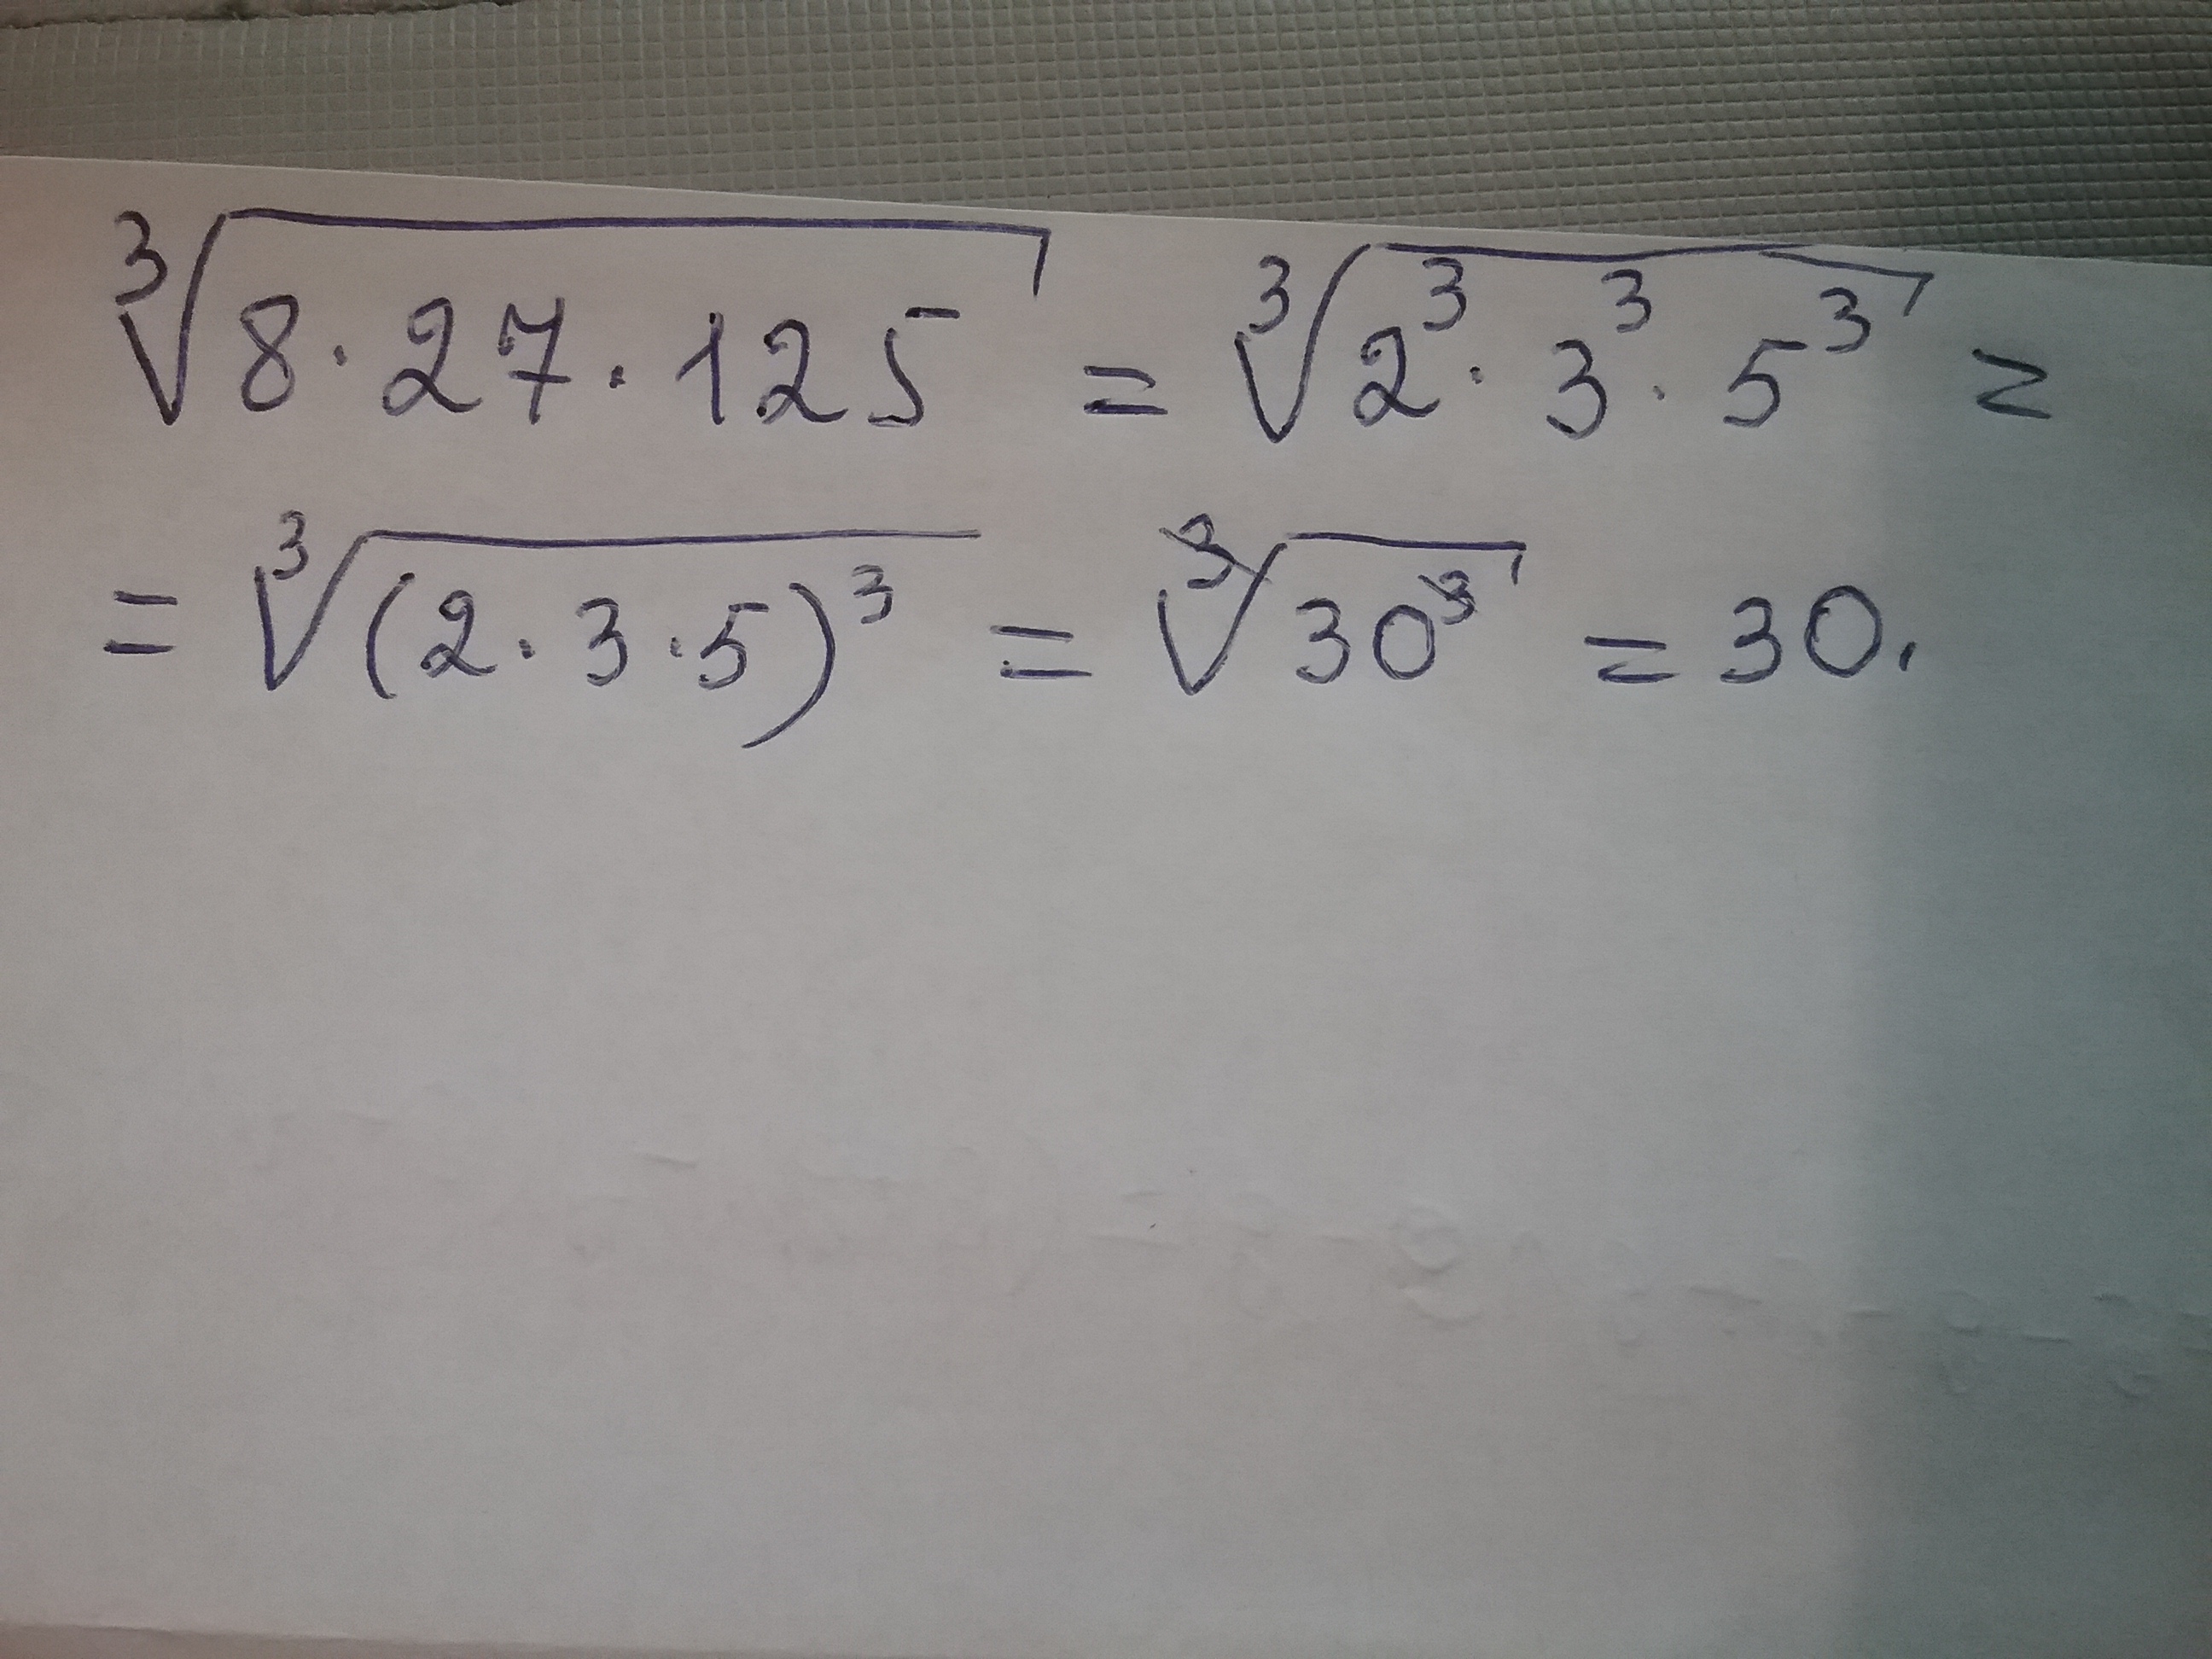 ∛(8·27·125) = ∛(2³·3³·5³) =
= ∛((2·3·5)³) = ∛(30³) = 30.